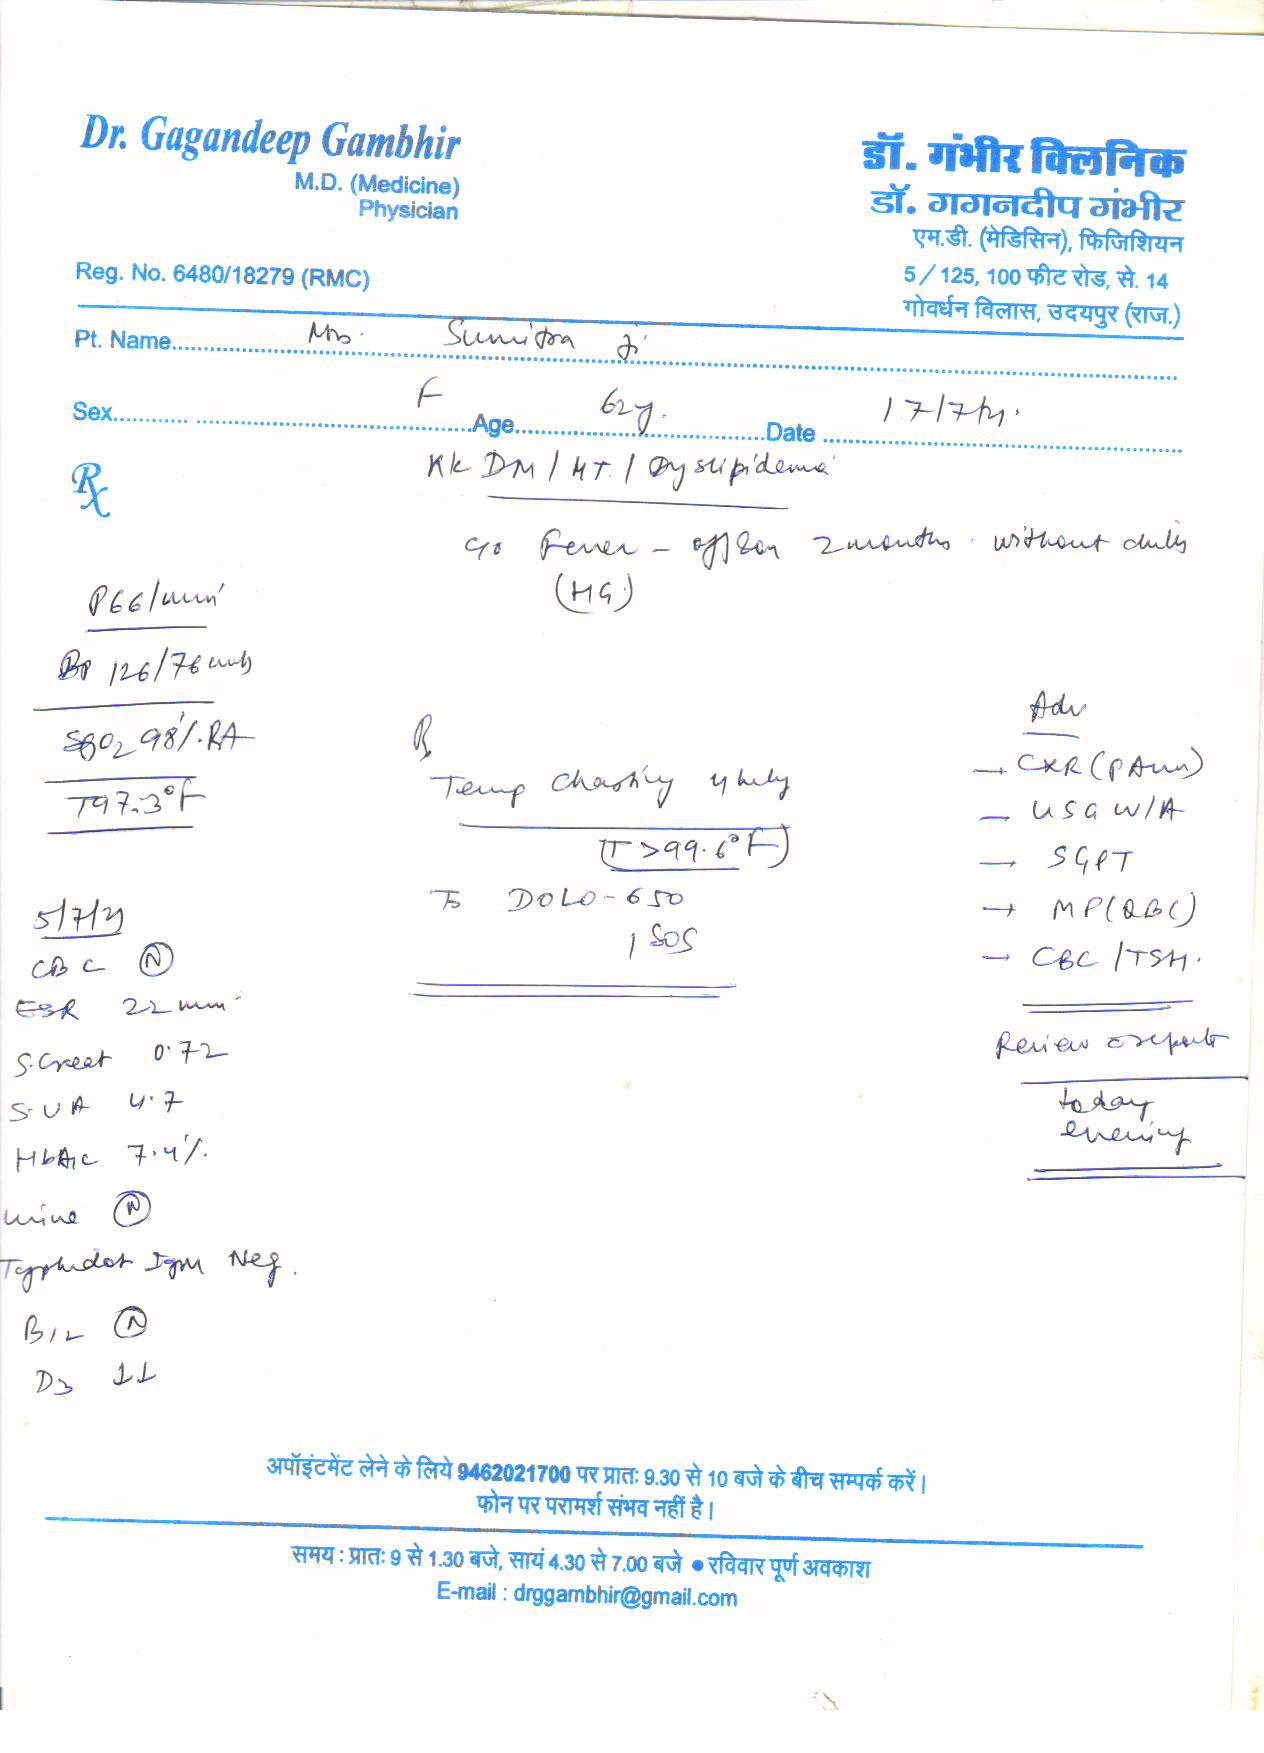 Dr. Gagandeep Gambhir
M.D. (Medicine)
Physician
Reg. No. 6480/18279 (RMC)
डॉ. गंभीर क्लिनिक
डॉ. गगनदीप गंभीर
एम.डी. (मेडिसिन), फिजिशियन
5/125, 100 फीट रोड, से. 14
गोवर्धन विलास, उदयपुर (राज.)
Pt. Name Mrs. Sumitra Ji
Sex F Age 62y. Date 17/7/21.
Rx
K/c DM / HT / Dyslipidemia
c/o Fever - off & on 2 months without chills
(HG)
P 66/min
BP 126/76 mmHg
SpO2 98%. RA
T 97.3°F
5/7/21
CBC (N)
ESR 22 mm
S.Creat 0.72
S.UA 4.7
HbA1c 7.4%.
Urine (N)
Typhidot IgM Neg.
B12 (N)
D3 11
R
Temp Charting 4 hrly
(T >99.6°F)
T DOLO-650
1 SOS
Adv
→ CXR (PA view)
- USG W/A
→ SGPT
→ MP (QBC)
→ CBC / TSH.
Review c reports
today
evening
अपॉइंटमेंट लेने के लिये 9462021700 पर प्रातः 9.30 से 10 बजे के बीच सम्पर्क करें।
फोन पर परामर्श संभव नहीं है।
समय : प्रातः 9 से 1.30 बजे, सायं 4.30 से 7.00 बजे ● रविवार पूर्ण अवकाश
E-mail : drggambhir@gmail.com